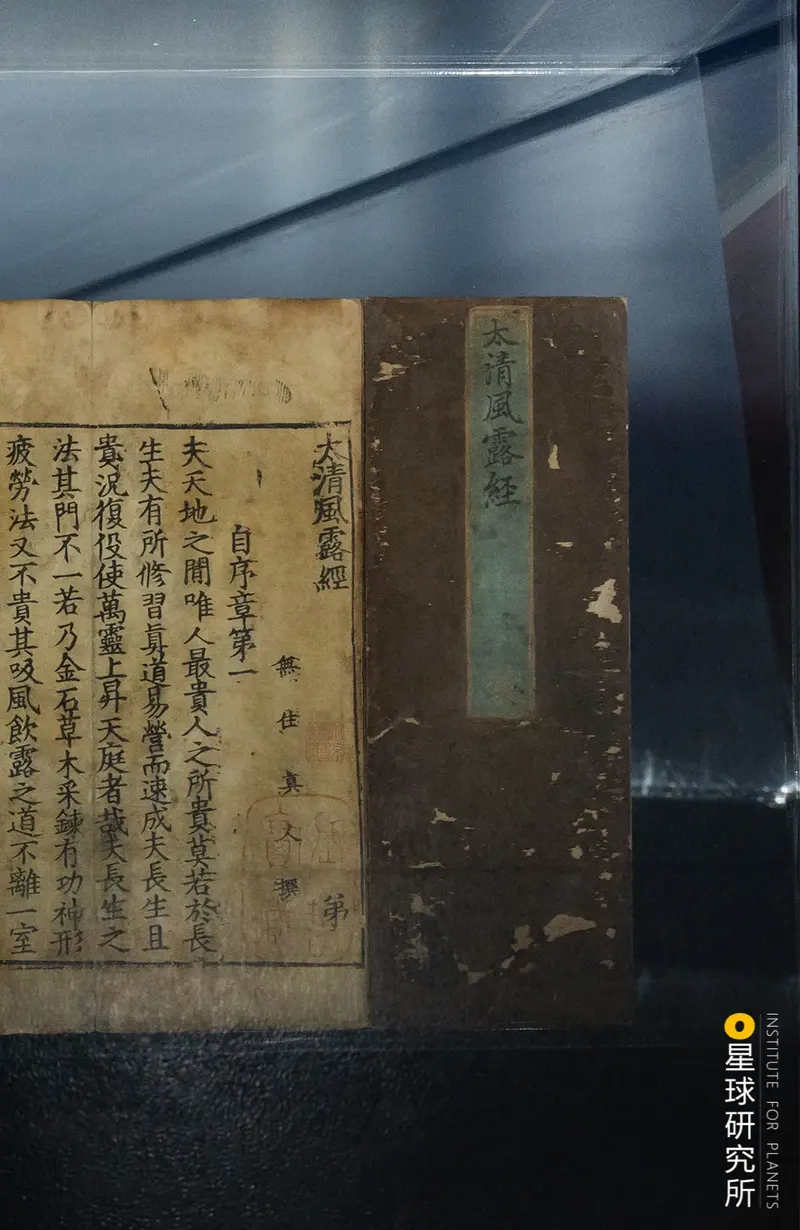 太清風露経
太清風露經
第
無住真人撰
自序章第一
夫天地之間唯人最貴人之所貴莫若於長
生夫有所修習真道易營而速成夫長生且
貴況復役使萬靈上昇天庭者哉夫長生之
法其門不一若乃金石草木采鍊有功神形
疲勞法又不貴其吸風飲露之道不離一室
星球研究所
INSTITUTE FOR PLANETS